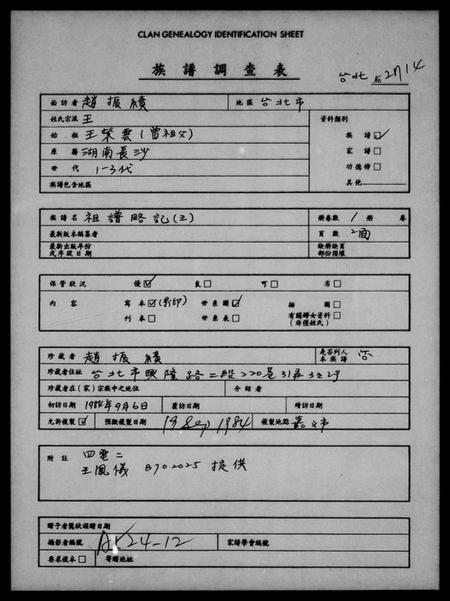 CLAN GENEALOGY IDENTIFICATION SHEET
族譜調查表
台北 2714
面訪者 趙振績 地區 台北市
姓氏宗派 王 資料類別
始祖 王榮雲(曾祖父) 族譜 ✓
原籍 湖南長沙 家譜
世代 1-3代 功德榜
族譜包含地區 其他
族譜名 祖譜略記(王) 冊卷數 1 冊 卷
最新版本編纂者 頁數 2面
最新出版年份或序跋日期 缺冊缺頁部份損壞
保管狀況 優 ✓ 良 可 劣
內容 寫本 ✓ (影印) 世系圖 ✓ 插圖
刊本 世系表 有關婦女資料(非僅姓氏)
珍藏者 趙振績 是否列入本族譜 否
珍藏者住址 台北市興隆路二段220巷31弄32號
珍藏者在(家)宗族中之地位 介紹者
初訪日期 1984年9月6日 覆訪日期 增訪日期
允許複製 ✓ 預擬複製日期 19 Sep 1984 複製地點 嘉義市
附註 四電二
王鳳儀 B702025 提供
贈予者獲致複贈日期
攝影者編號 AK24-12 家譜學會編號
要求複本 寄贈地址